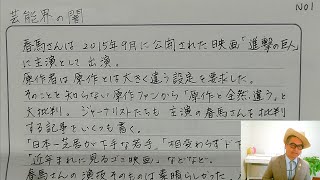 芸能界の闇
NO1
春馬さんは 2015年9月に公開された映画「進撃の巨人」
に主演として 出演。
原作者は 原作とは大きく違う設定を要求した。
そのことを 知らない原作ファンから「原作と全然違う。」と
大批判。ジャーナリストたちも 主演の春馬さんを批判
する記事をいくつも書く。
「日本一芝居が下手な若手。」「相変わらず下
「近年まれに見るゴミ映画」などなど。
春馬さんの演技そのものは素晴らしかった